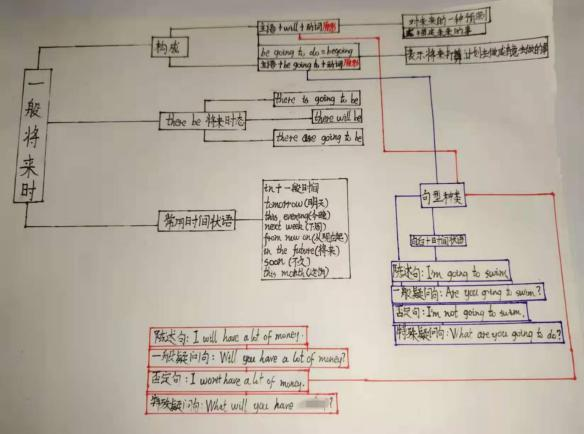 一般将来时
构成
主语+will+动词原形
对未来的一种预测
be going to do = begoing
主语+be going to+动词原形
there be 将来时态
there is going to be
there will be
there are going to be
常用时间状语
in + 一段时间
tomorrow (明天)
this evening (今晚)
next week (下周)
from now on (从现在起)
in the future (将来)
soon (不久)
this month (这个月)
句型种类
时间状语
陈述句: I'm going to swim.
一般疑问句: Are you going to swim?
否定句: I'm not going to swim.
特殊疑问句: What are you going to do?
陈述句: I will have a lot of money.
一般疑问句: Will you have a lot of money?
否定句: I won't have a lot of money.
特殊疑问句: What will you have ?